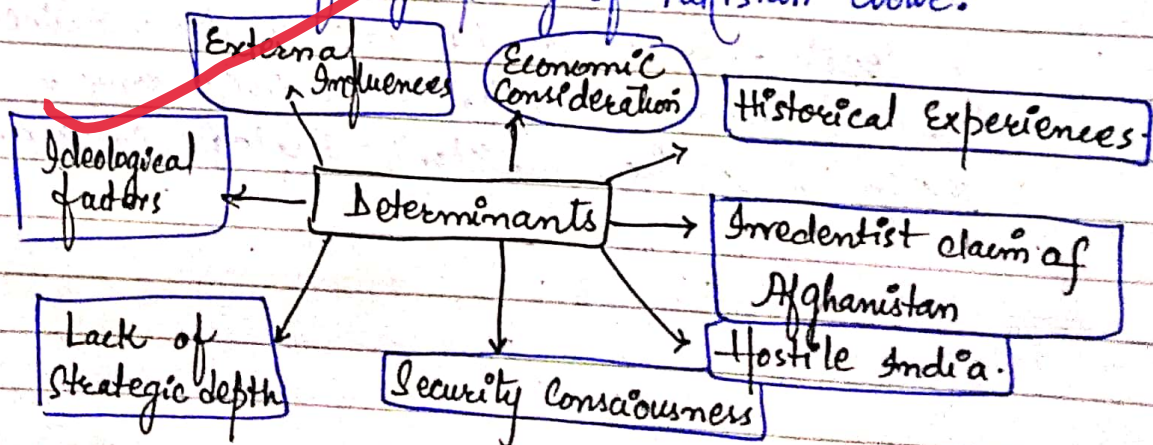 Pakistan
External
Influences
Economic
Consideration
Historical Experiences.
Ideological
factors
Determinants
Irredentist claim of
Afghanistan
Lack of
Strategic depth
Hostile India.
Security Consciousness